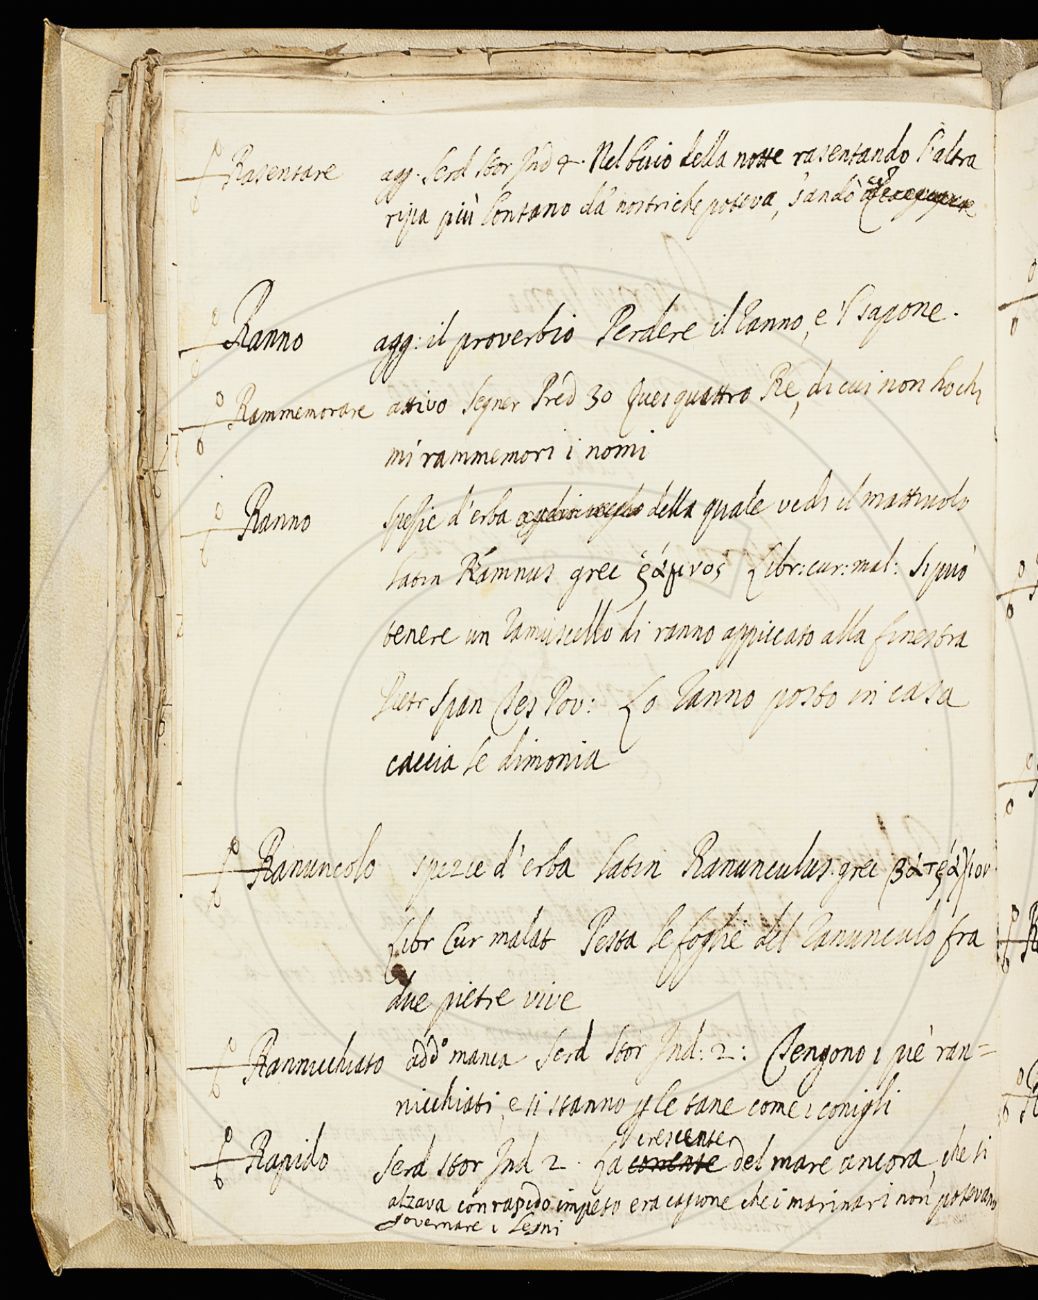 Rasentare agg. Serd Stor Ind 4. Nel buio della notte rasentando l'altra
ripa più lontano da nostri che poteva, s'andò
Ranno agg: il proverbio Perdere il ranno, e 'l sapone.
Rammemorare attivo Segner Pred 30 Quei quattro Re, di cui non ho chi
mi rammemori i nomi
Ranno spezie d'erba della quale vedi il mattiuolo
latin Rámnus grec ῥάμνος Libr: cur: mal: Si può
tenere un ramuscello di ranno appiccato alla finestra
Pietr Span Tes Pov: Lo ranno posto in casa
caccia le dimonia
Ranuncolo spezie d'erba latin Ranunculus grec βάτράχιον
Libr Cur malat Pesta le foglie del ranunculo fra
due pietre vive
Rannicchiato add.º manca Serd Stor Ind: 2: Tengono i piè ran=
nicchiati, e si stanno p le tane come i conigli
crescente
Rapido Serd Stor Ind 2. La corrente del mare ancora, che si
alzava con rapido impeto era cagione che i marinari non potevano
governare i Legni